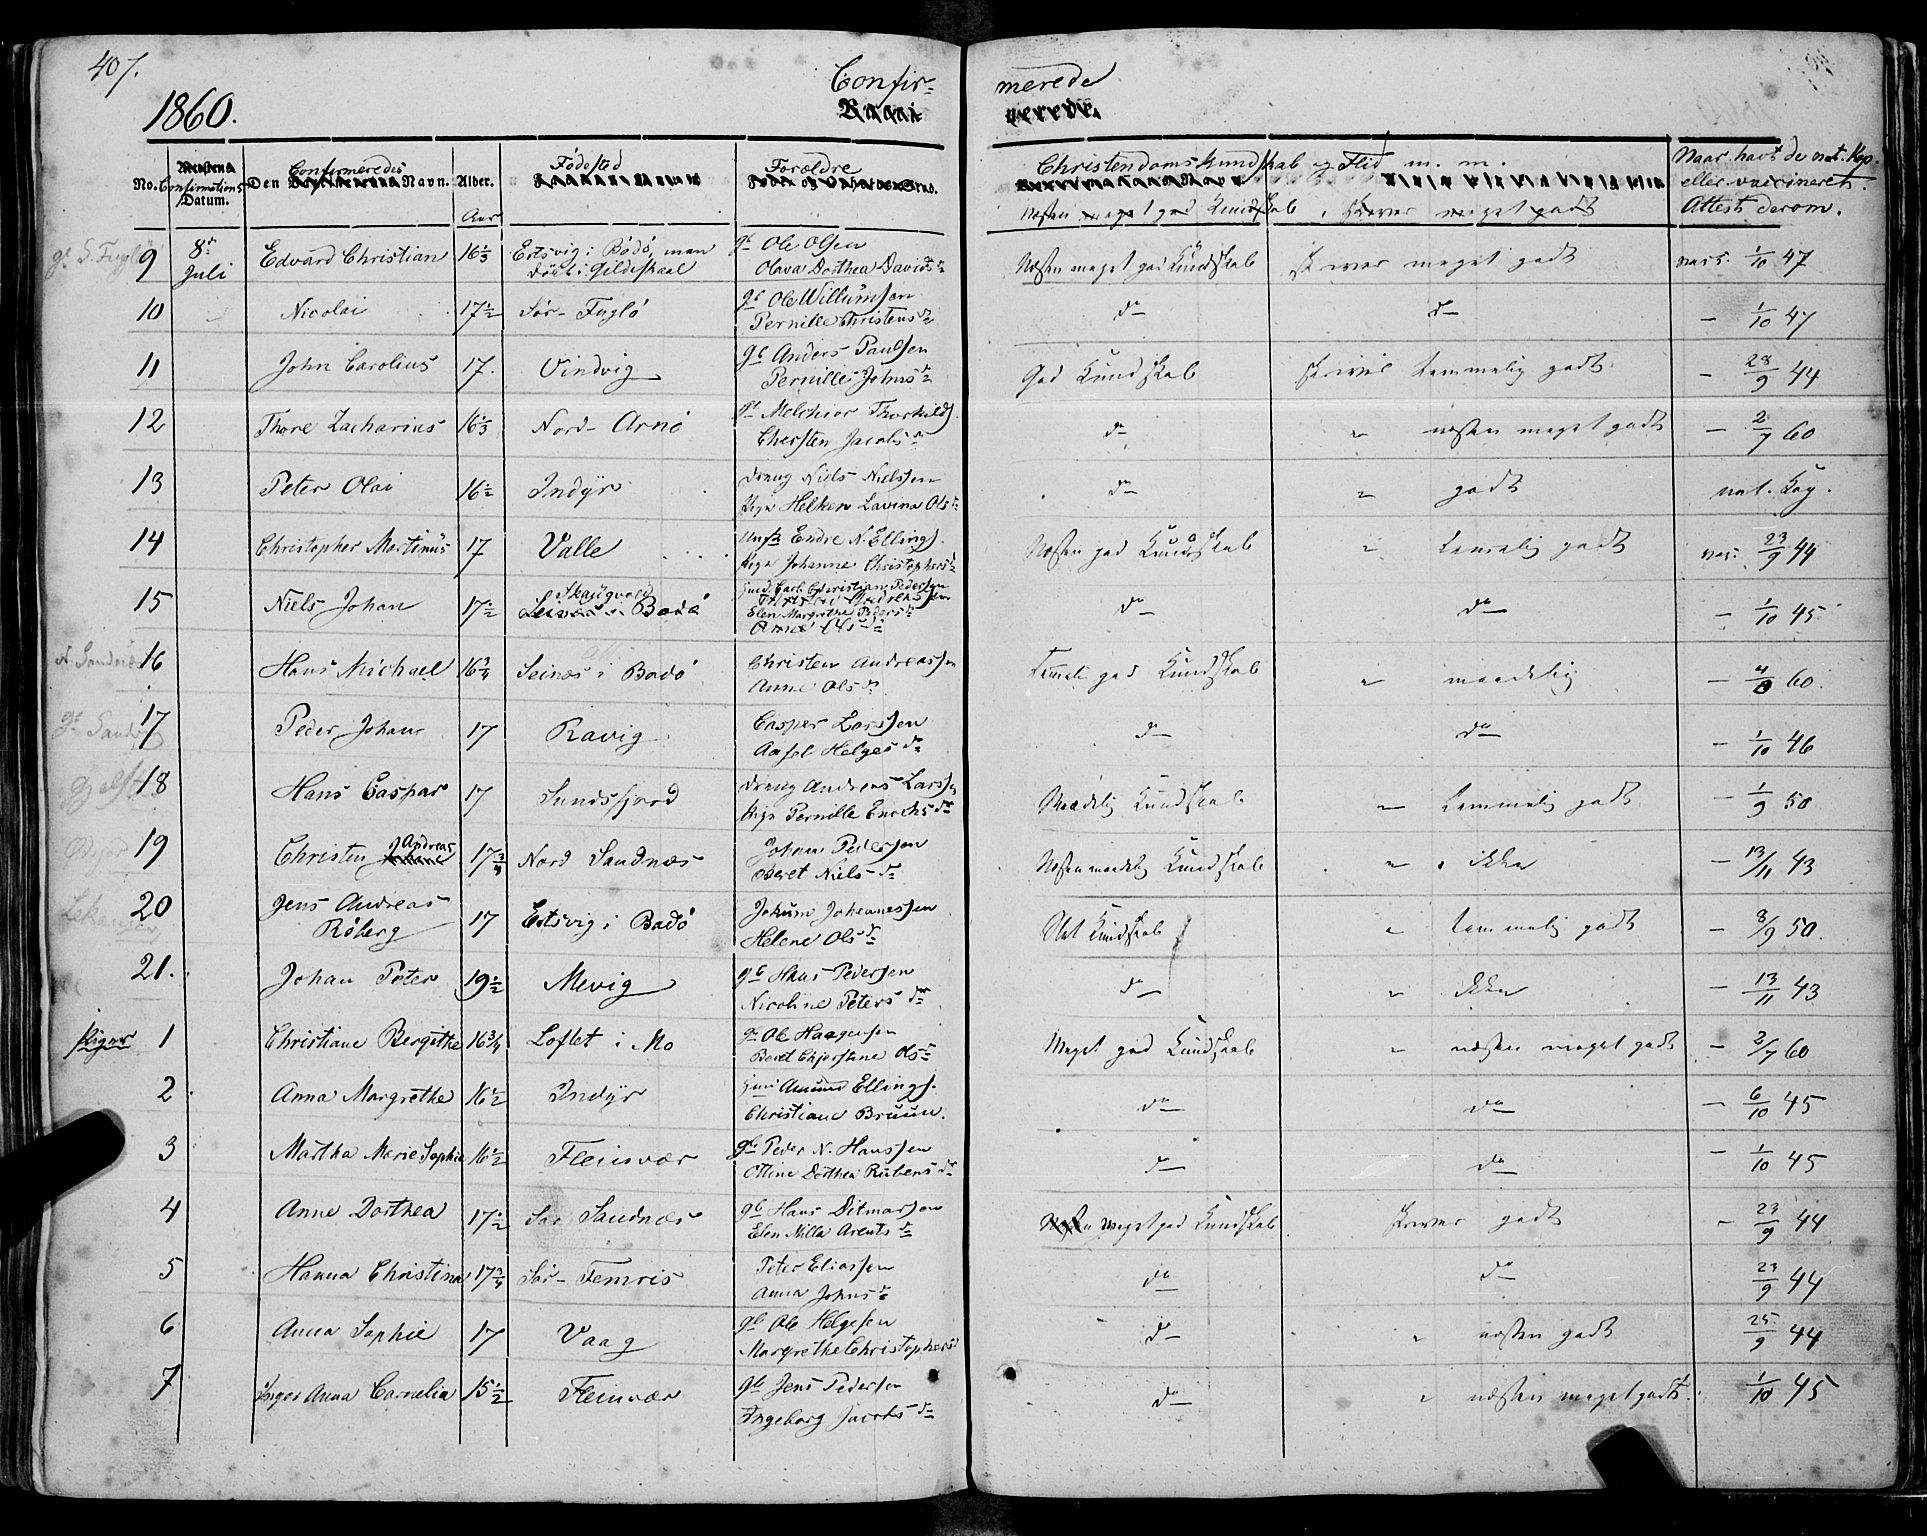 407.
1860.
Confir-
merede
No. Confirmations Datum. Den Confirmeredes Navn. Alder. Aar Födested Forældre
Christendoms Kundskab og Flid m. m.
Naar havt de nat. Kop.
eller vaccineret.
Attest derom.
Næsten meget god Kundskab, skriver meget godt
9 8de Juli Edvard Christian 16⅓ Ertsvig i Bodö, men döbt i Gildeskaal gb Ole Olsen Olava Dorthea Davidsdr Næsten meget god Kundskab skriver meget godt vacc. 1/10 47
10 Nicolai 17½ Sör-Fuglö gb Ole Willumsen Pernille Christensdr do do - 1/10 47
11 John Carolius 17. Vindvig gb Anders Paulsen Pernille Johnsdr God Kundskab skriver temmelig godt - 28/9 44
12 Thore Zacharius 16⅓ Nord-Arnö gb Melchior Thorkilds. Chersten Jacobsdr do " næsten meget godt - 2/7 60
13 Peter Olai 16½ Indyr Niels Nielssen Pige Helken Lavina Olsdr do " godt nat. Kop.
14 Christopher Martinus 17 Valle Ungk Endre N. Ellings. Pige Johanne Christophersdr Næsten god Kundskab " temmelig godt vac. 23/9 44
15 Niels Johan 17½ Skaugvold Seines i Bodö Carl Christian Pedersen Christen Andreassen Elen Margrethe Pedersdr Anne Olsdr do do - 1/10 45
N. Sandnæs 16 Hans Michael 16¾ Seines i Bodö Christen Andreassen Anne Olsdr Temmeli god Kundskab " maadelig - 60.
17 Peder Johan 17 Ravig Casper Larssen Aasel Helgesdr do do - 1/10 46
18 Hans Caspar 17 Sundsfjord Andreas Larssen Pige Pernille Enochsdr Maadelig Kundskab " temmelig godt - 1/9 50
19 Christen Andreas 17¾ Nord Sandnæs Johan Pedersen Beret Nielsdr Næsten maadelig Kundskab " ikke - 13/11 43
20 Jens Andreas Röberg 17 Ertsvig i Bodö Jokum Johannessen Helene Olsdr Slet Kundskab " temmelig godt - 8/9 50.
21. Johan Peter 19½ Mevig gb Hans Pedersen Nicoline Petersdr do " ikke - 13/11 43
Piger 1 Christiane Bergithe 16¾ Loftet i Mo gb Ole Haagensen Beret Olsdr Meget god Kundskab " næsten meget godt - 2/7 60
2 Anna Margrethe 16½ Indyr Amund Ellings. Christiane Bruun. do do - 6/10 45
3 Martha Marie Sophie 16½ Fleinvær gb Peder N. Hanssen Ottine Dorthea Rubensdr do do - 1/10 45
4 Anne Dorthea 17½ Sör Sandnæs gb Hans Ditmarsen Elen Milla Arentsdr Næsten meget god Kundskab skriver godt - 23/9 44
5 Hanna Christina 17¾ Sör-Femris Peter Eliassen Anna Johnsdr do do 23/9 44
6 Anna Sophie 17 Vaag gb Ole Helgesen Margrethe Christophersd do " næsten godt 25/9 44
7 Inger Anna Cornelia 15½ Fleinvær gb Jens Pedersen Ingeborg Jacobsdr do " næsten meget godt. 1/10 45